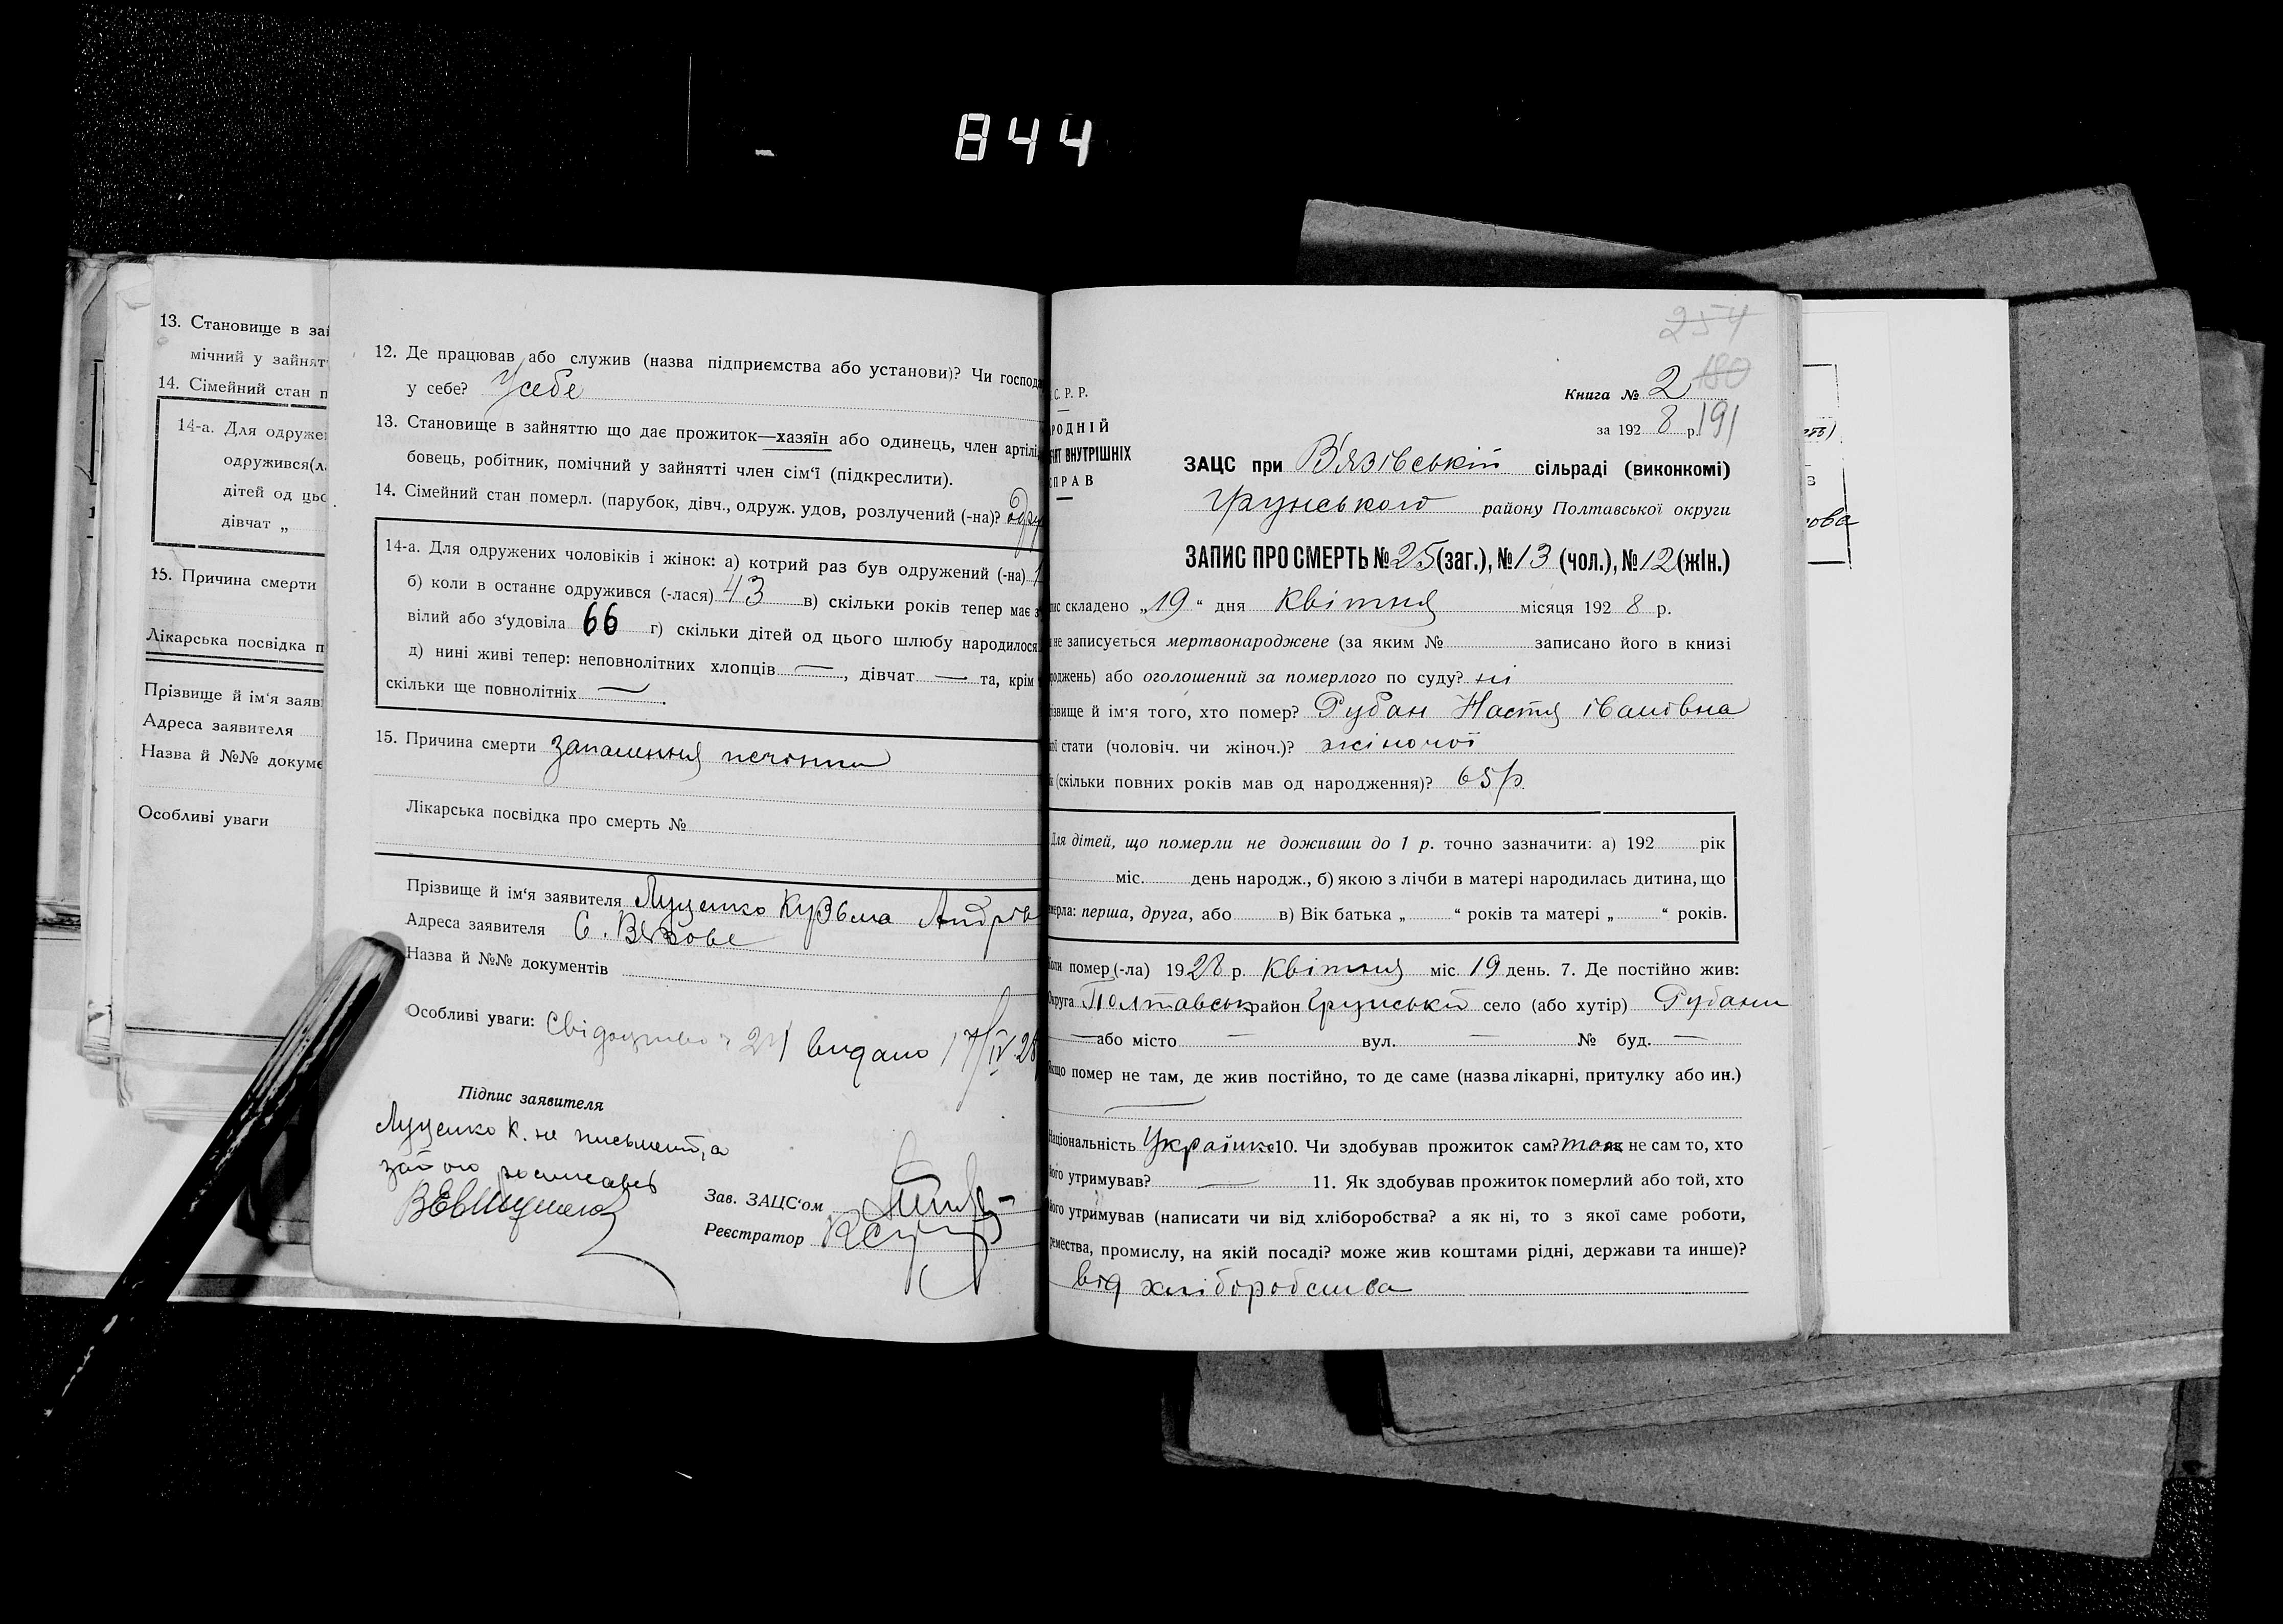 844
13. Становище в заї
мічний у зайнят
14. Сімейний стан п
14-а. Для одруже
одружився(л
дітей од цьо
дівчат „
15. Причина смерти
Лікарська посвідка п
Прізвище й ім'я заяв
Адреса заявителя
Назва й №№ докуме
Особливі уваги
12. Де працював або служив (назва підприємства або установи)? Чи господ
у себе? У себе
13. Становище в зайняттю що дає прожиток—хазяїн або одинець, член артілі,
бовець, робітник, помічний у зайнятті член сім'ї (підкреслити).
14. Сімейний стан померл. (парубок, дівч., одруж. удов, розлучений (-на)? одру
14-а. Для одружених чоловіків і жінок: а) котрий раз був одружений (-на) 1
б) коли в останнє одружився (-лася) 43 в) скільки років тепер має з
вілий або з'удовіла 66 г) скільки дітей од цього шлюбу народилося
д) нині живі тепер: неповнолітних хлопців —, дівчат — та, крім
скільки ще повнолітніх — .
15. Причина смерти запалення печінки
Лікарська посвідка про смерть №
Прізвище й ім'я заявителя Луценко Кузьма Андрів
Адреса заявителя С. Вязове
Назва й №№ документів
Особливі уваги: Свідоцтво 24 видано 17/IV.28
Підпис заявителя
Луценко К. не письмен, а
за його росписавсь
Зав. ЗАЦС'ом
Реєстратор
254
180
Книга № 2
за 192 8 р. 191
С. Р. Р.
РОДНІЙ
ІЯТ ВНУТРІШНІХ
СПРАВ
ЗАЦС при В'язівській сільраді (виконкомі)
Грунського району Полтавської округи
ЗАПИС ПРО СМЕРТЬ № 25 (заг.), № 13 (чол.), № 12 (жін.)
пис складено „19" дня Квітня місяця 192 8 р.
и не записується мертвонароджене (за яким № записано його в книзі
роджень) або оголошений за померлого по суду? ні
ізвище й ім'я того, хто помер? Рубан Настя івановна
ої стати (чоловіч. чи жіноч.)? жіночої
к (скільки повних років мав од народження)? 65 р.
Для дітей, що померли не доживши до 1 р. точно зазначити: а) 192 рік
міс. день народж., б) якою з лічби в матері народилась дитина, що
мерла: перша, друга, або в) Вік батька „ " років та матері „ " років.
Коли помер (-ла) 1928 р. Квітня міс. 19 день. 7. Де постійно жив:
Округа Полтавськ район Грунський село (або хутір) Рубани
— або місто — вул. — № буд. —
Якщо помер не там, де жив постійно, то де саме (назва лікарні, притулку або ин.)
—
Національність Українка 10. Чи здобував прожиток сам? так як не сам то, хто
його утримував? — 11. Як здобував прожиток померлий або той, хто
його утримував (написати чи від хліборобства? а як ні, то з якої саме роботи,
ремества, промислу, на якій посаді? може жив коштами рідні, держави та инше)?
від хліборобства